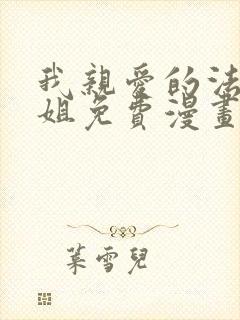 我親愛的法
姐免費漫畫
葉雪兒